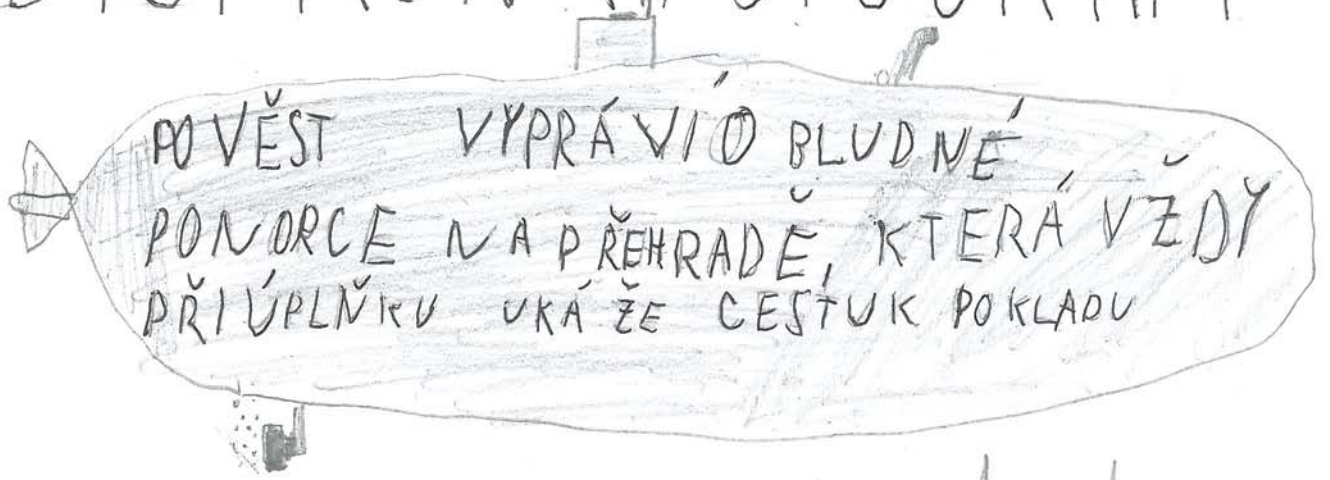 POVĚST VYPRÁVÍ O BLUDNÉ
PONORCE NA PŘEHRADĚ, KTERÁ VŽDY
PŘI ÚPLŇKU UKÁŽE CESTU K POKLADU